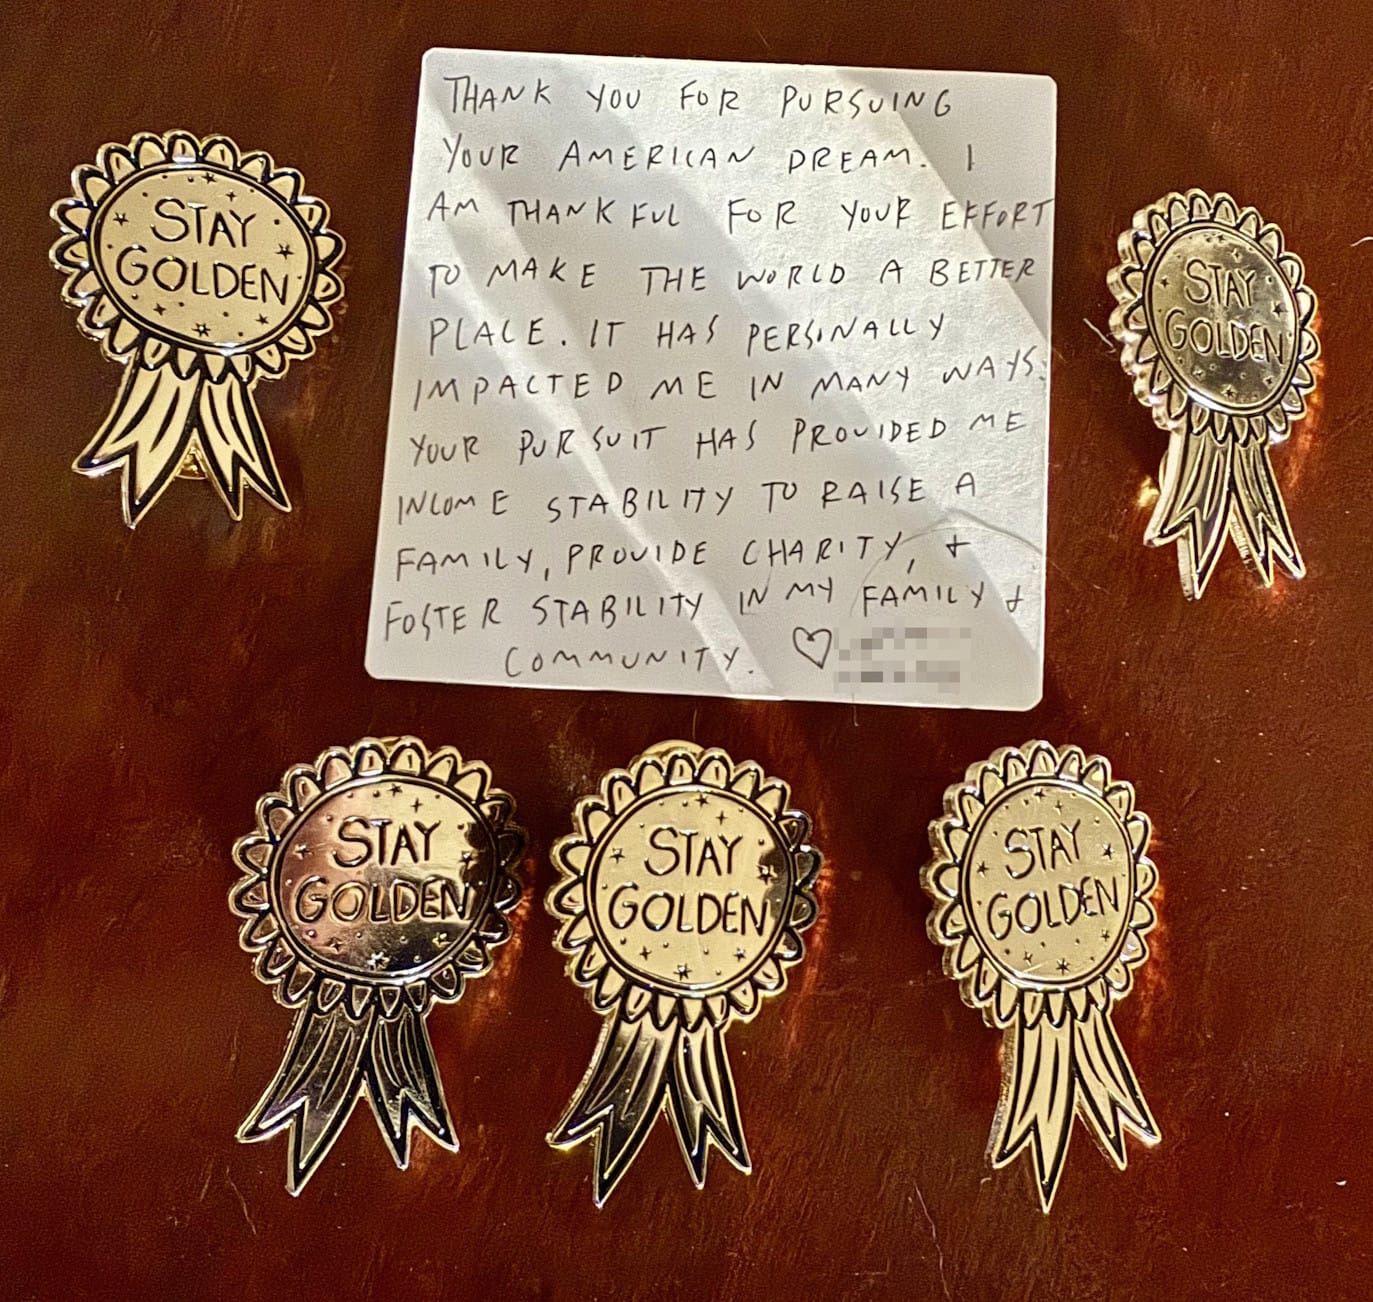 THANK YOU FOR PURSUING
YOUR AMERICAN DREAM. I
AM THANKFUL FOR YOUR EFFORT
TO MAKE THE WORLD A BETTER
PLACE. IT HAS PERSONALLY
IMPACTED ME IN MANY WAYS.
YOUR PURSUIT HAS PROVIDED ME
INCOME STABILITY TO RAISE A
FAMILY, PROVIDE CHARITY, +
FOSTER STABILITY IN MY FAMILY +
COMMUNITY. ♡
STAY
GOLDEN
STAY
GOLDEN
STAY
GOLDEN
STAY
GOLDEN
STAY
GOLDEN